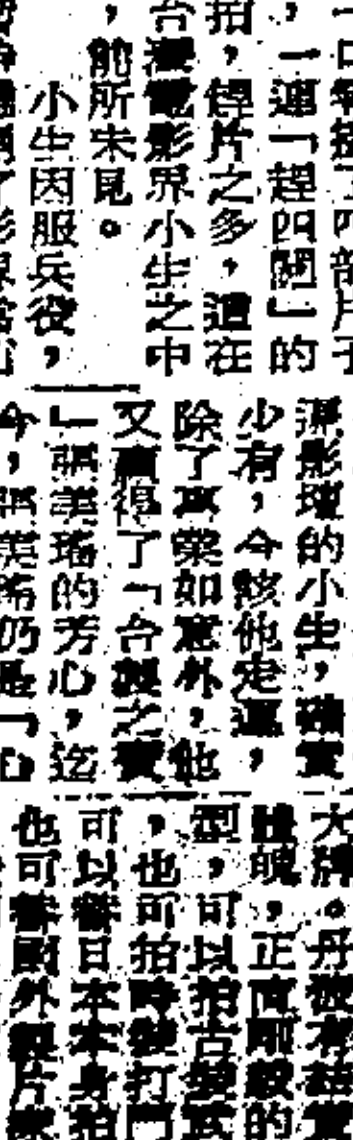 一口氣接了四部片子
，一連「趕四關」的
拍，錚片之多，這在
台灣電影界小生之中
，前所未見。
小生因服兵役，
影壇的小生，確實
少有，今該他走運，
除了事業如意外，他
又贏得了「台製之寶
」張美瑤的芳心，迄
今，張美瑤仍是「
大牌。丹
體魄，正直剛毅的
型，可以拍古裝武
，也可拍時裝打鬥
可以替日本本身拍
也可替國外製片